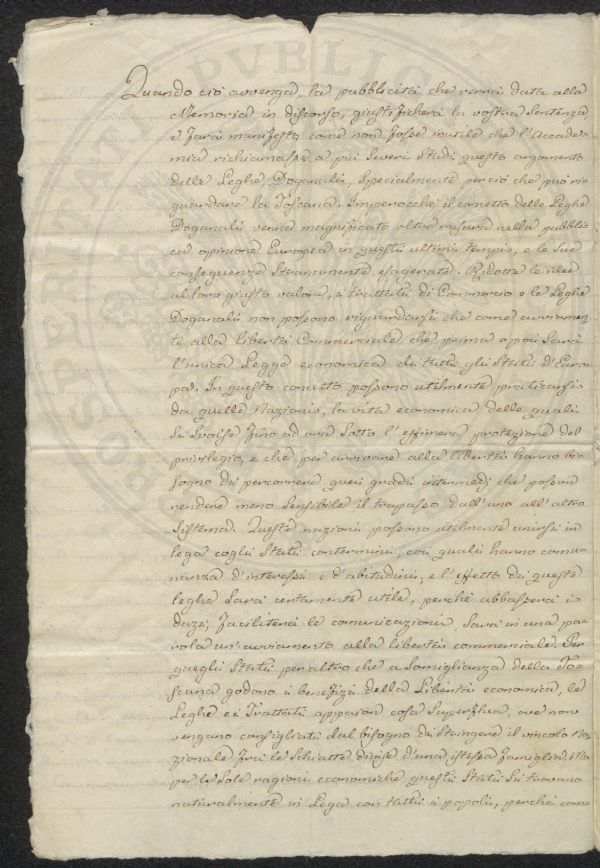 Quando ciò avvenga, la pubblicità che verrà data alla
Memoria in discorso, giustificherà la vostra Sentenza
e farà manifesto come non fosse inutile che l'Accade-
mia richiamasse a più severi Studi questo argomento
delle Leghe Doganali, Specialmente perciò che può ri-
guardare la Toscana. Imperocchè il concetto delle Leghe
Doganali venne magnificato oltre misura nella pubbli-
ca opinione Europea in questi ultimi tempi, e le Sue
conseguenze Stranamente esagerate. Ridotte le idee
al loro giusto valore, i trattati di Commercio e le Leghe
Doganali non possono riguardarsi che come avviamen-
ti alla libertà Commerciale che prima o poi Sarà
l'unica Legge economica di tutti gli Stati d'Euro-
pa. In questo concetto possono utilmente praticarsi
da quelle Nazioni, la vita economica delle quali
Si Svolse fino ad ora Sotto l'effimera protezione del
privilegio, e che per arrivare alla libertà hanno bi-
sogno di percorrere quei gradi intermedj che possan
rendere meno Sensibile il trapasso dall'uno all'altro
Sistema. Queste nazioni possono utilmente unirsi in
lega cogli Stati contermini, coi quali hanno comu-
nanza d'interessi e d'abitudini, e l'effetto di queste
leghe Sarà certamente utile, perchè abbasserà i
dazi, faciliterà le comunicazioni, Sarà in una pa-
rola un'avviamento alla libertà commerciale. Per
quegli Stati per altro che a Somiglianza della To-
scana godono i benefizi della Libertà economica, le
Leghe e i Trattati appaion cosa Superflua, ove non
vengano consigliati dal bisogno di Stringere il vincolo Na-
zionale fra le Schiatte divise d'una istessa famiglia. Ma
per le Sole ragioni economiche questi Stati Si trovano
naturalmente in Lega con tutti i popoli, perchè com-